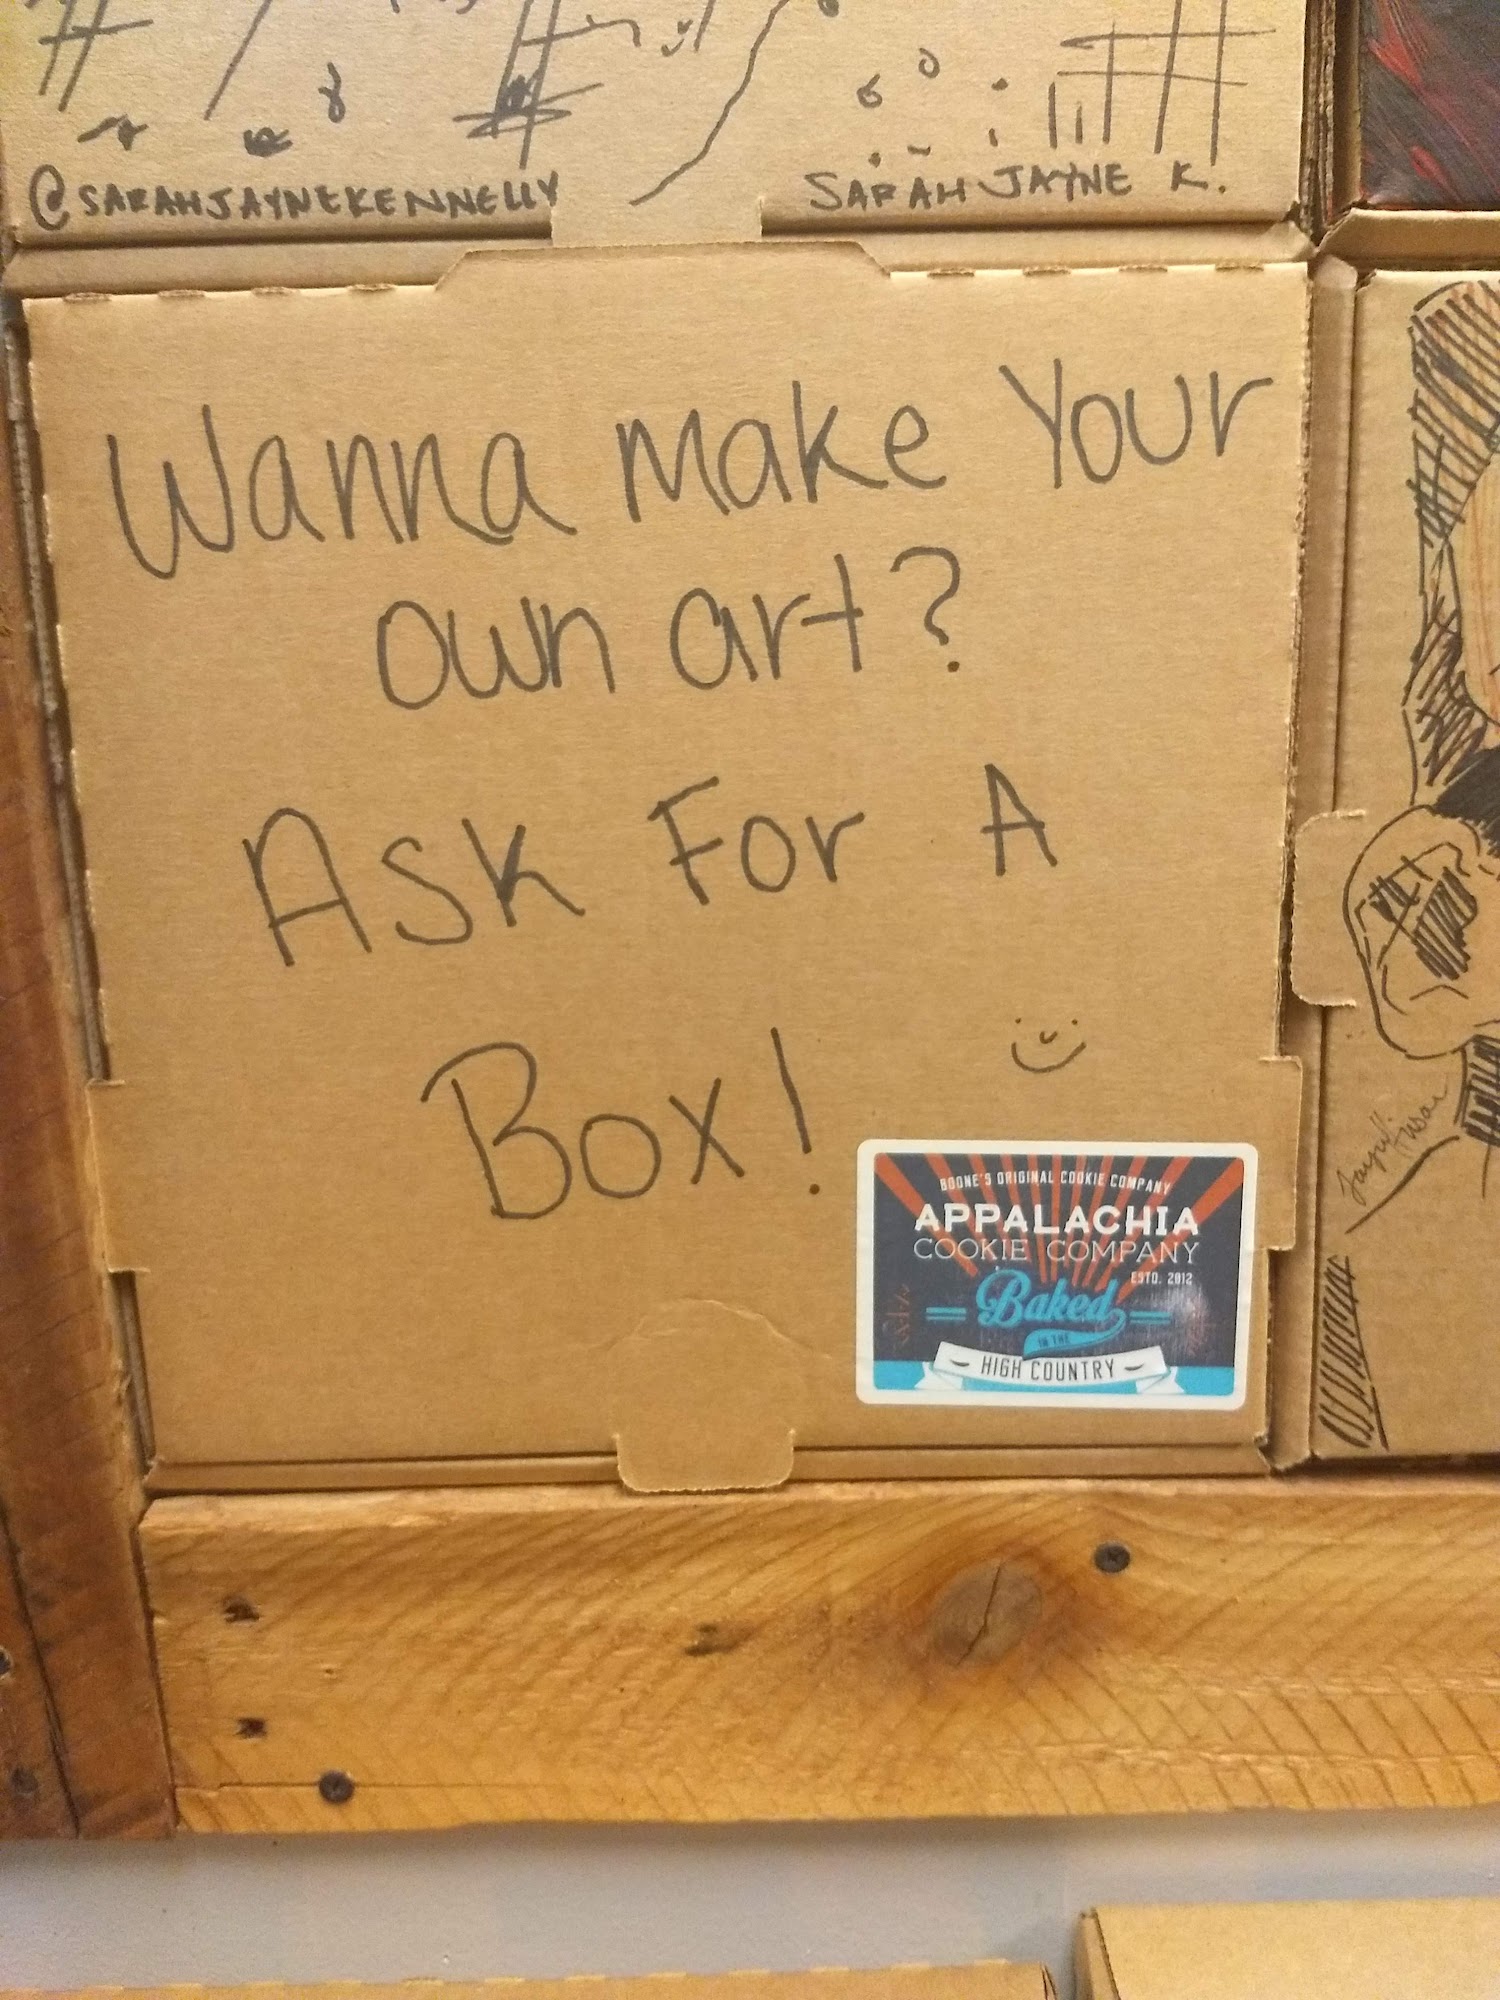 @SARAHJAYNEKENNELLY
SARAH JAYNE K.
Wanna make Your
own art?
Ask For A
Box!
BOONE'S ORIGINAL COOKIE COMPANY
APPALACHIA
COOKIE COMPANY
ESTD. 2012
Baked
IN THE
HIGH COUNTRY